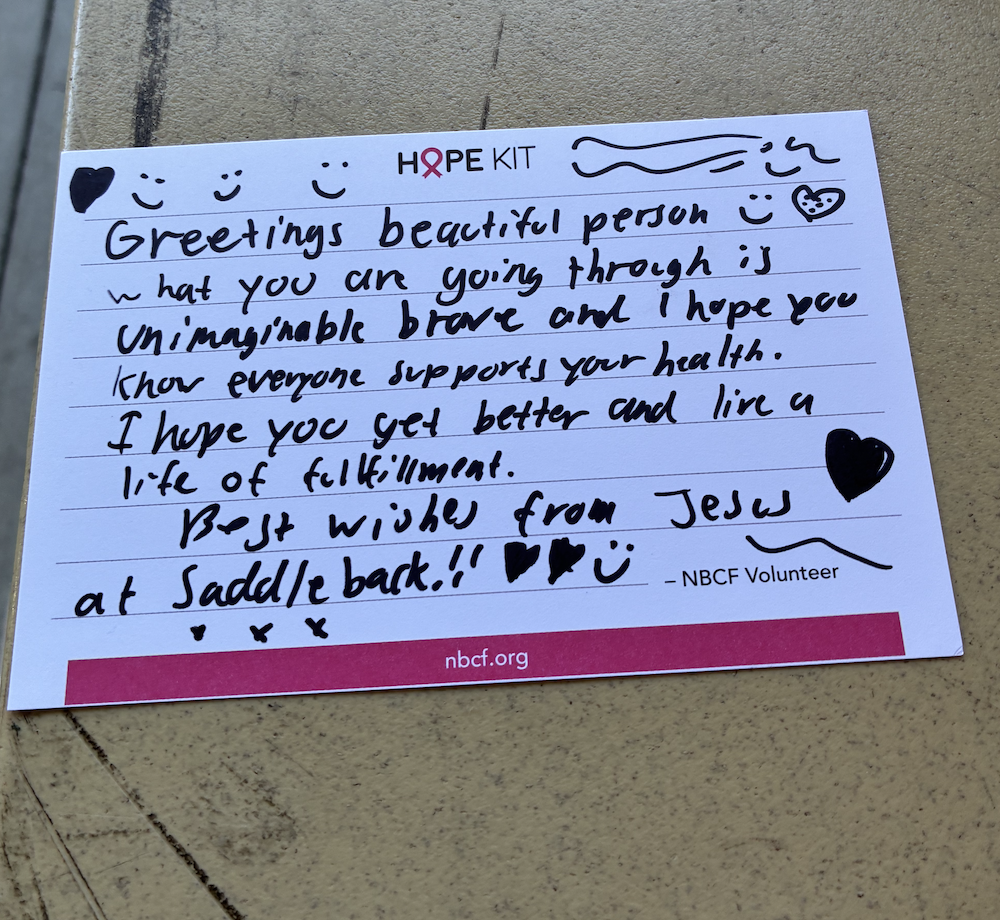 HOPE KIT
Greetings beautiful person
what you are going through is
unimaginable brave and I hope you
know everyone supports your health.
I hope you get better and live a
life of fulfillment.
Best wishes from Jesus
at Saddleback.!!
– NBCF Volunteer
nbcf.org